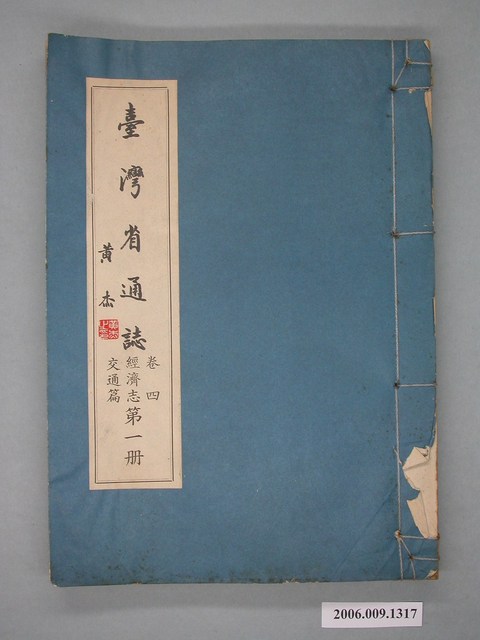 臺灣省通誌
卷四
經濟志
交通篇
第一册
黃杰
2006.009.1317